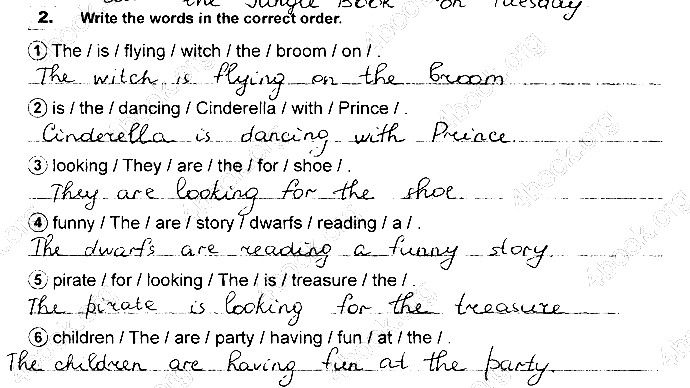 the Jungle Book on Tuesday
2. Write the words in the correct order.
① The / is / flying / witch / the / broom / on / .
The witch is flying on the broom
② is / the / dancing / Cinderella / with / Prince / .
Cinderella is dancing with Prince.
③ looking / They / are / the / for / shoe / .
They are looking for the shoe
④ funny / The / are / story / dwarfs / reading / a / .
The dwarfs are reading a funny story.
⑤ pirate / for / looking / The / is / treasure / the / .
The pirate is looking for the treasure
⑥ children / The / are / party / having / fun / at / the / .
The children are having fun at the party.